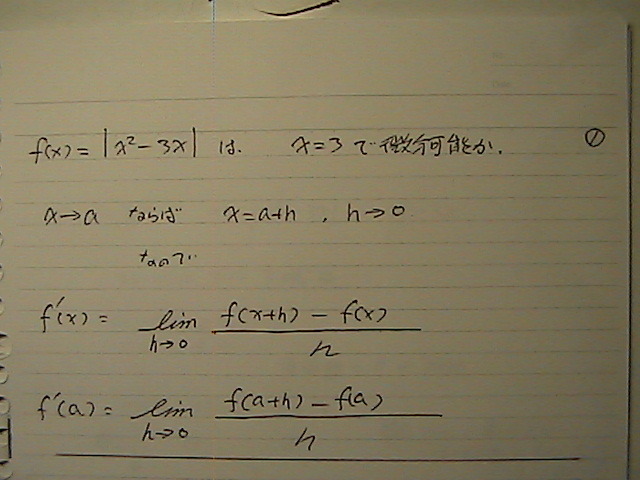 f(x) = |x² - 3x| は. x = 3 で微分可能か. ①
x → a ならば x = a+h , h → 0
なので
f'(x) = lim h→0 f(x+h) - f(x) / h
f'(a) = lim h→0 f(a+h) - f(a) / h